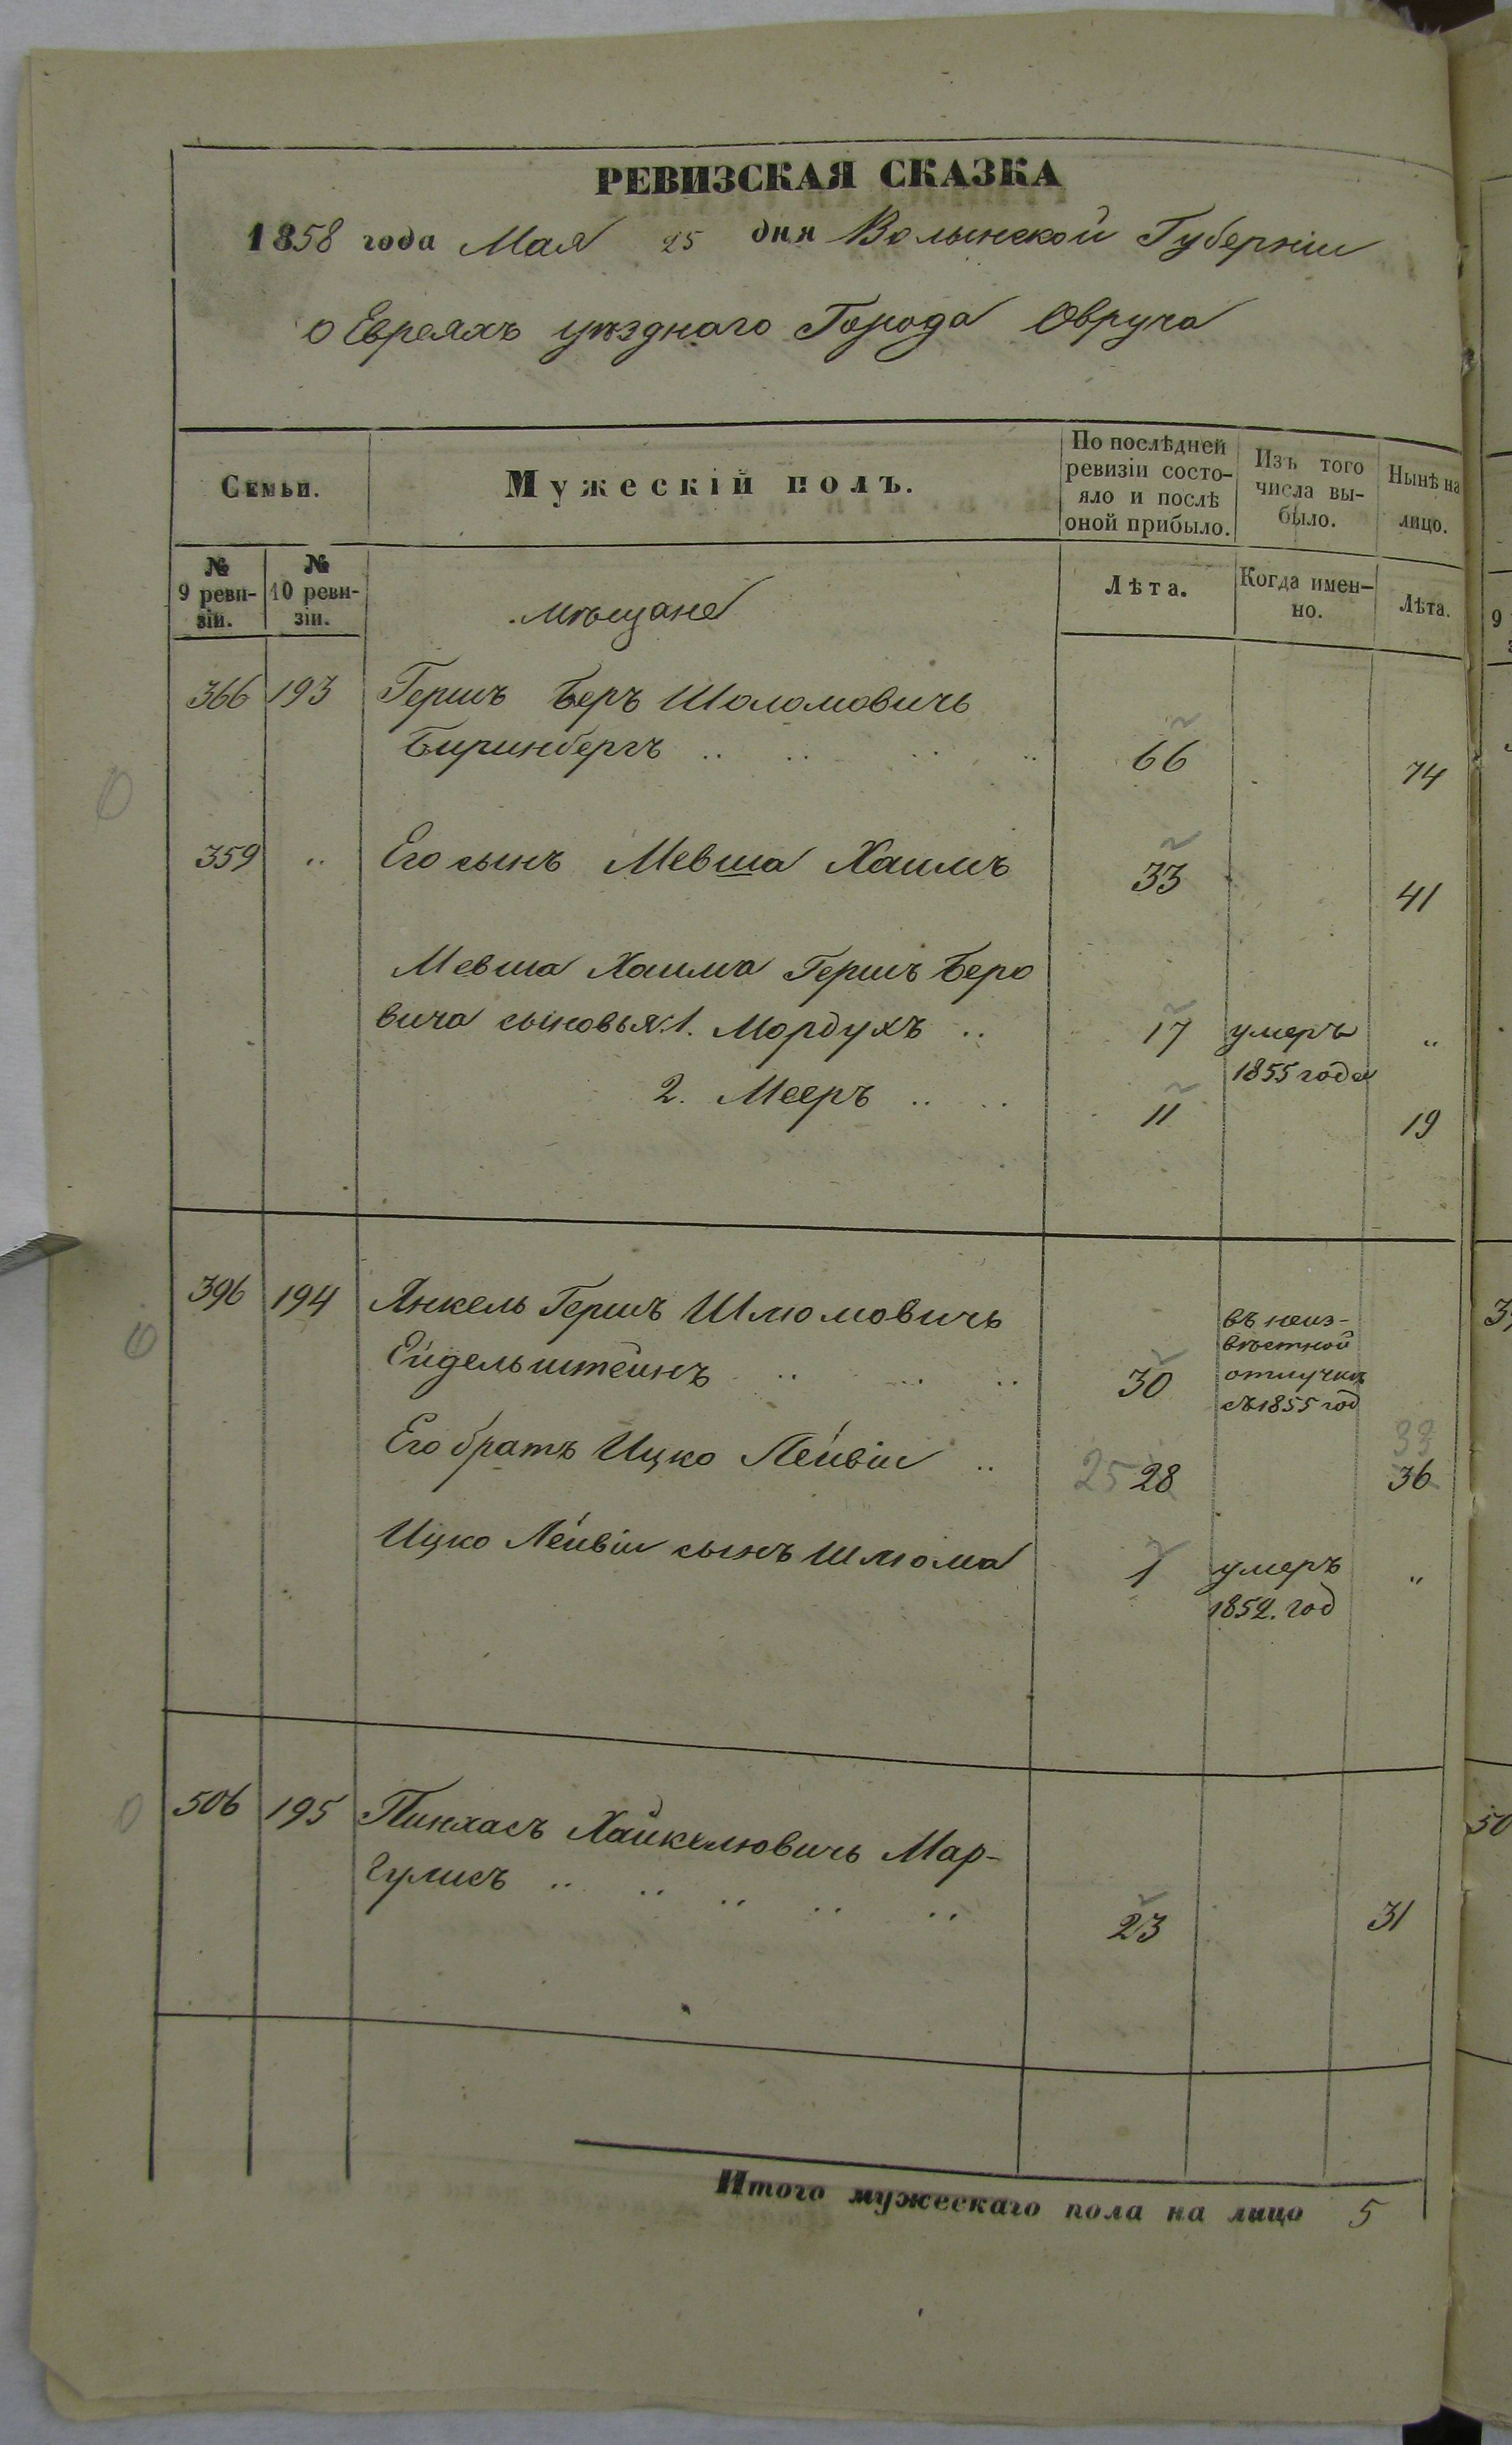 РЕВИЗСКАЯ СКАЗКА
1858 года Мая 25 дня Волынской Губерніи
о Евреяхъ уѣзднаго Города Овруча
Семьи.
Мужескій полъ.
По послѣдней
ревизіи состо-
яло и послѣ
оной прибыло.
Изъ того
числа вы-
было.
Нынѣ на
лицо.
№
9 реви-
зіи.
№
10 реви-
зіи.
мѣщане
Лѣта.
Когда имен-
но.
Лѣта.
366 193 Гершъ Беръ Шоломовичь
Биринбергъ .. .. .. .. 66 74
359 .. Его сынъ Мевша Хаимъ 33 41
Мевша Хаима Гершъ Беро
вича сыновья 1. Мордухъ .. 17 умеръ „
1855 года
2. Мееръ .. .. 11 19
396 194 Янкель Гершъ Шлюмовичь
Ейдельштейнъ .. .. .. 30
въ неиз-
вѣстной
отлучкѣ
съ 1855 год
Его братъ Ицко Лейвіи .. 25 28 33 36
Ицко Лейвіи сынъ Шлюма 1 умеръ „
1852. год
506 195 Пинхасъ Хайкелювичь Мар-
гулисъ .. .. .. .. .. 23 31
Итого мужескаго пола на лицо 5